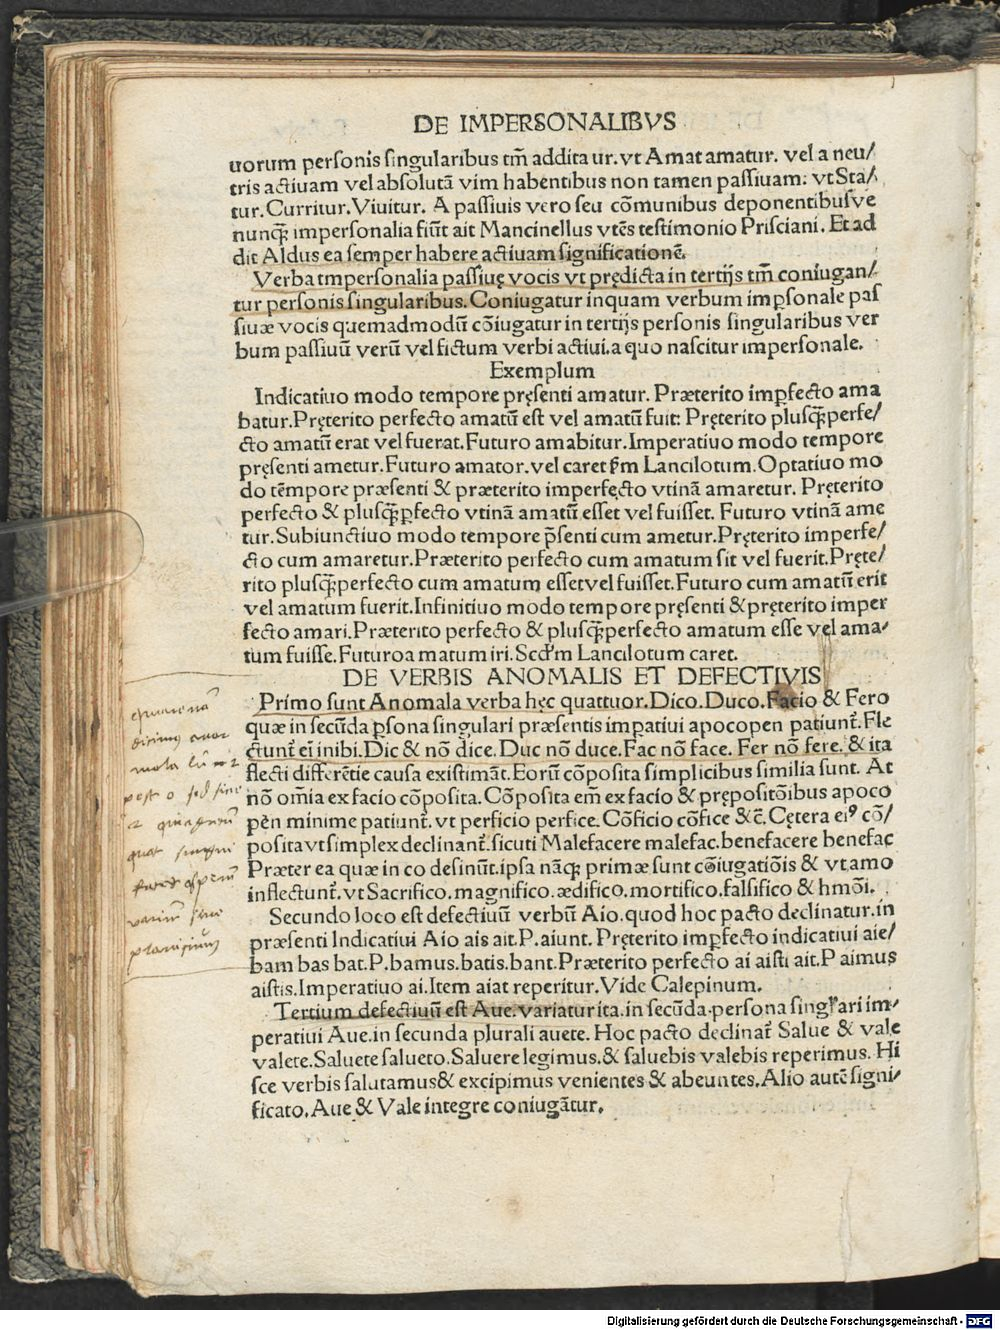 DE IMPERSONALIBVS
uorum personis singularibus tm̄ addita ur. vt Amat amatur. vel a neu/
tris actiuam vel absolutā vim habentibus non tamen passiuam: vt Sta/
tur. Curritur. Viuitur. A passiuis vero seu cōmunibus deponentibusve
nunq̄ impersonalia fiūt ait Mancinellus vtēs testimonio Prisciani. Et ad
dit Aldus ea semper habere actiuam significationē.
Verba impersonalia passiuę vocis vt prędicta in tertijs tm̄ coniugan/
tur personis singularibus. Coniugatur inquam verbum imp̱sonale pas
siuæ vocis quemadmodū cōiugatur in tertijs personis singularibus ver
bum passiuū verū vel fictum verbi actiui. a quo nascitur impersonale.
Exemplum
Indicatiuo modo tempore pręsenti amatur. Præterito imp̱fecto ama
batur. Pręterito perfecto amatū est vel amatū fuit: Pręterito plusq̄perfe/
cto amatū erat vel fuerat. Futuro amabitur. Imperatiuo modo tempore
pręsenti ametur. Futuro amator. vel caret ẜm Lancilotum. Optatiuo mo
do tēmpore præsenti & præterito imperfecto vtinā amaretur. Pręterito
perfecto & plusq̄p̱fecto vtinā amatū esset vel fuisset. Futuro vtinā ame
tur. Subiunctiuo modo tempore p̄senti cum ametur. Pręterito imperfe/
cto cum amaretur. Præterito perfecto cum amatum sit vel fuerit. Pręte/
rito plusq̄perfecto cum amatum essetvel fuisset. Futuro cum amatū erit
vel amatum fuerit. Infinitiuo modo tempore pręsenti & pręterito imper
fecto amari. Præterito perfecto & plusq̄perfecto amatum esse vel ama/
tum fuisse. Futuroa matum iri. Scd'm Lancilotum caret.
DE VERBIS ANOMALIS ET DEFECTIVIS
Primo sunt Anomala verba hęc quattuor. Dico. Duco. Facio & Fero
quæ in secūda p̱sona singulari præsentis imp̱atiui apocopen patiunt̄. Fle
ctunt̄ eī inibi. Dic & nō dice. Duc nō duce. Fac nō face. Fer nō fere. & ita
flecti differētie causa existimāt. Eorū cōposita simplicibus similia sunt. At
nō omīa ex facio cōposita. Cōposita em̄ ex facio & prępositōibus apoco
pēn minime patiunt̄. vt perficio perfice. Cōficio cōfice &c̄. Cętera ei⁹ cō/
posita vt simplex declinant̄. sicuti Malefacere malefac. benefacere benefac
Præter ea quæ in co desinūt. ipsa nāq̄ primæ sunt cōiugatiōis & vt amo
inflectunt̄. vt Sacrifico. magnifico. ædifico. mortifico. falsifico & hmōi.
Secundo loco est defectiuū verbū Aio. quod hoc pacto declinatur. in
præsenti Indicatiui Aio ais ait. P. aiunt. Pręterito imp̱fecto indicatiui aie/
bam bas bat. P. bamus. batis. bant. Præterito perfecto ai aisti ait. P aimus
aistis. Imperatiuo ai. Item aiat reperitur. Vide Calepinum.
Tertium defectiuū est Aue. variatur ita. in secūda persona singl'ari im/
peratiui Aue. in secunda plurali auete. Hoc pacto declinat̄ Salue & vale
valete. Saluete salueto. Saluere legimus. & saluebis valebis reperimus. Hi
sce verbis salutamus& excipimus venientes & abeuntes. Alio autē signi/
ficato. Aue & Vale integre coniugātur.
Digitalisierung gefördert durch die Deutsche Forschungsgemeinschaft - DFG